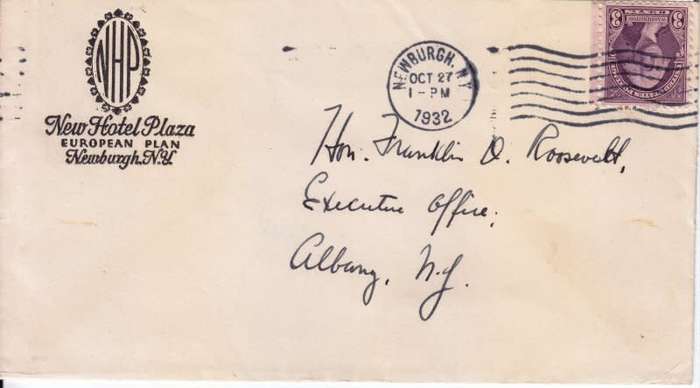 NHP
New Hotel Plaza
EUROPEAN PLAN
Newburgh.N.Y.
NEWBURGH, N.Y.
OCT 27
1-PM
1932
3
3
Hon. Franklin D. Roosevelt,
Executive Office,
Albany, N.Y.